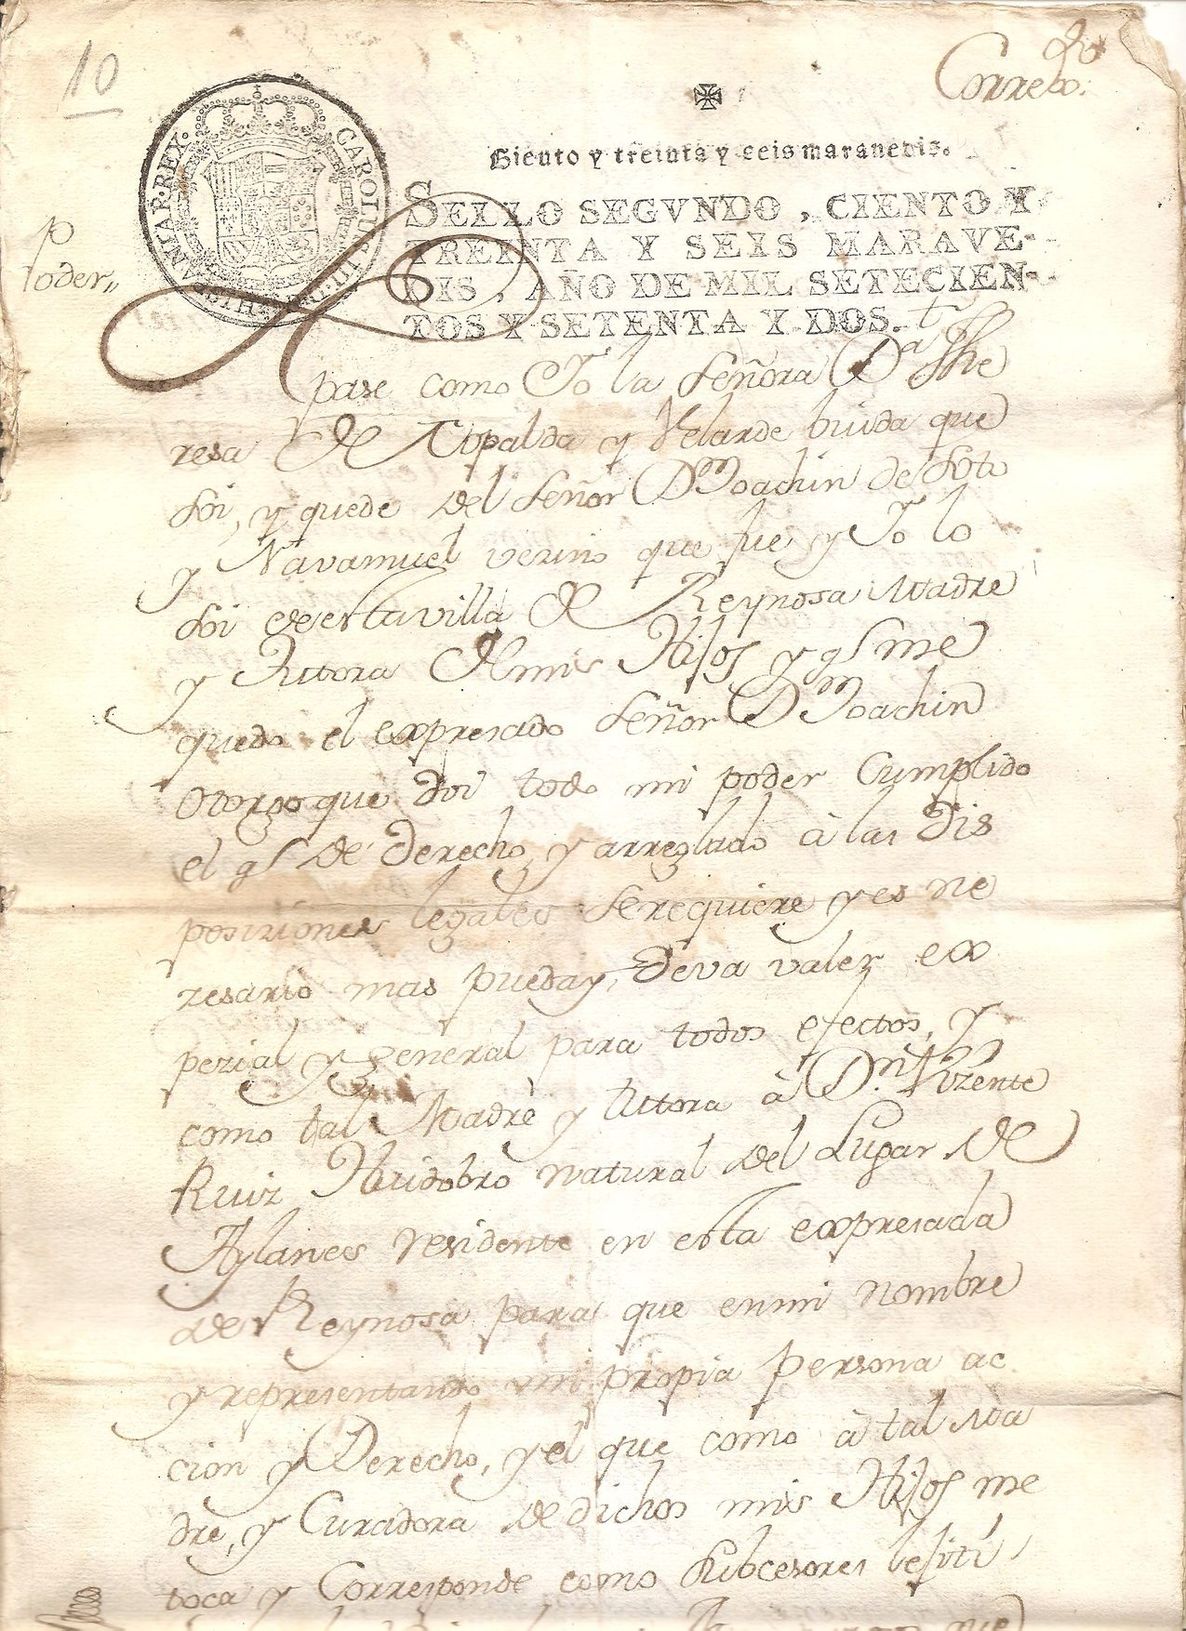 10
Correxo.
Siento y treinta y seis maravedis.
CAROLUS III D G HISPANIAR REX
SELLO SEGVNDO, CIENTO Y
TREINTA Y SEIS MARAVE-
DIS, AÑO DE MIL SETECIEN-
TOS Y SETENTA Y DOS.
Poder
pase como Yo la Señora Dª The
resa de Copalda y Velarde buida que
soi, y quede del Señor Dn Joachin de Soto
y Navamuel vezino que fue, y Yo lo
soi de esta villa de Reynosa Madre
y Tutora de mis Hijos y qe me
quedo el expresado Señor Dn Joachin
otorgo que doi todo mi poder Cumplido
el qe de derecho, y arreglado à las Dis
posiziones legales se requiere y es ne
zesario mas pueda y deva valer ex
pezial y general para todos efectos, y
como tal Madre y tutora à Dn Vizente
Ruiz Huidobro natural del Lugar de
Aylanes residente en esta expresada
de Reynosa para que en mi nombre
y representando mi propia persona ac
cion y Derecho, y el que como à tal Ma
dre, y Curadora de dichos mis Hijos me
toca y Corresponde como subcesores lejiti